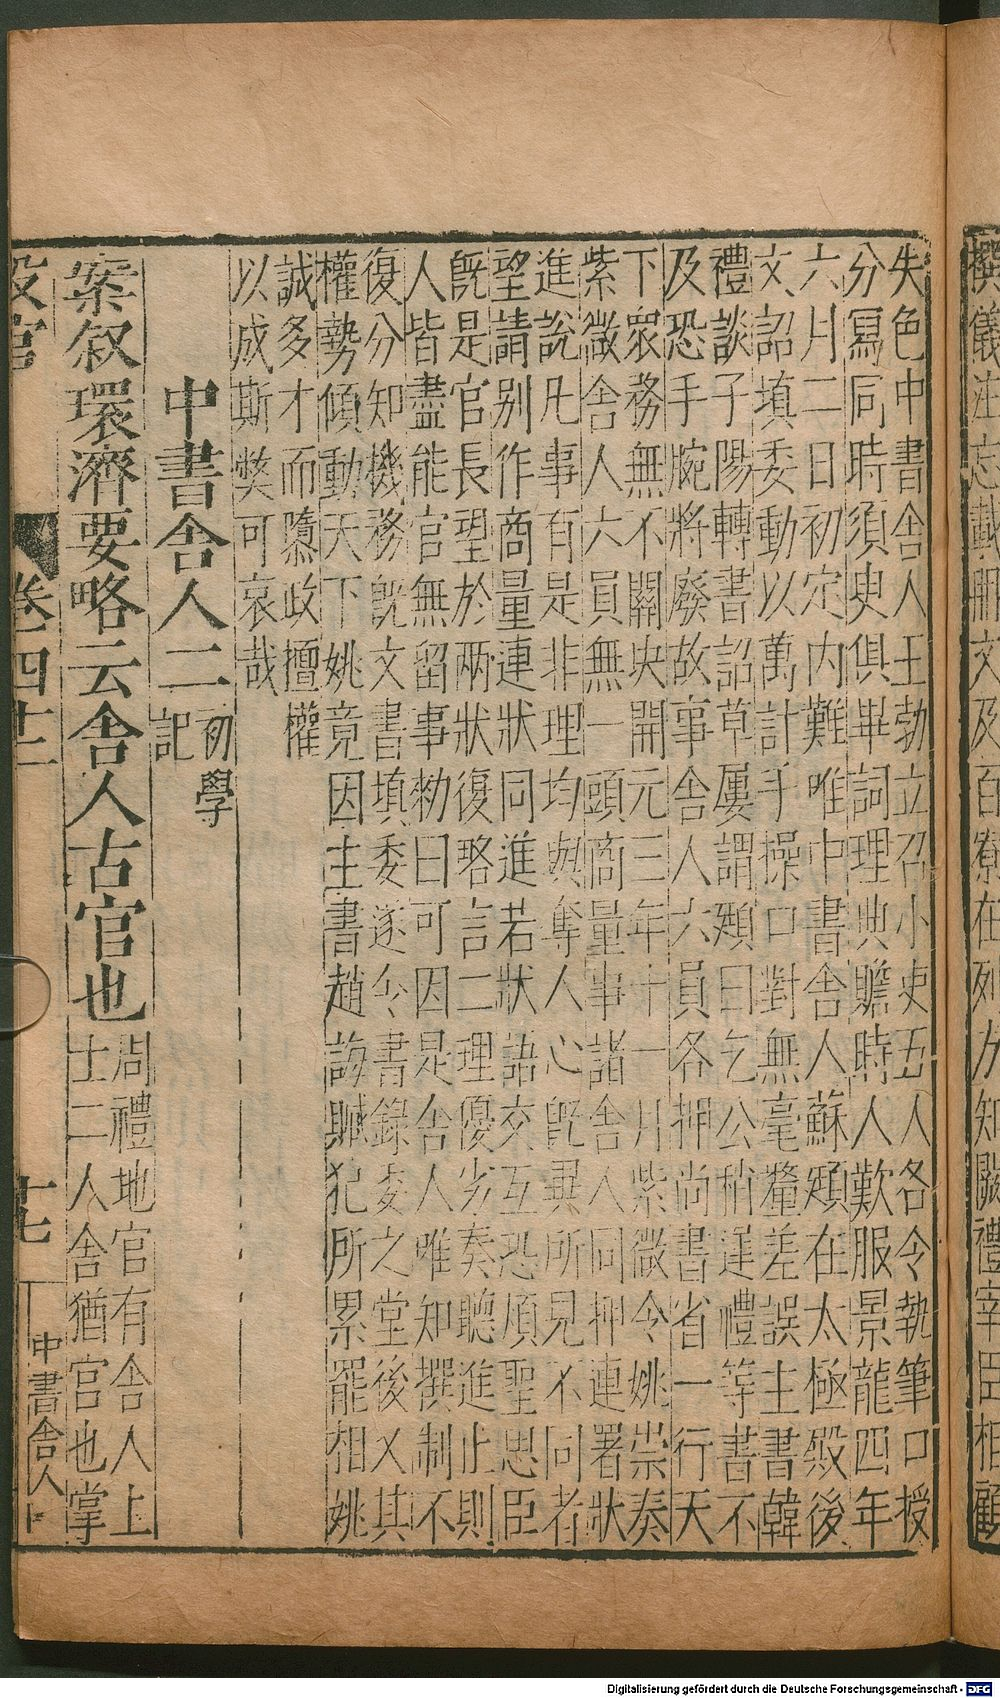 撰儀注忘載冊文及百寮在列方知闕禮宰臣相顧
失色中書舍人王勃立召小吏五人各令執筆口授
分寫同時須臾俱畢詞理典贍時人歎服景龍四年
六月二日初定内難唯中書舍人蘇頲在太極殿後
文詔填委動以萬計手操口對無毫釐差誤主書韓
禮談子陽轉書詔草屢謂頲曰乞公稍遲禮等書不
及恐手腕將廢故事舍人六員各押尚書省一行天
下眾務無不關决開元三年十一月紫微令姚崇奏
紫微舍人六員無一頭商量事諸舍人同押連署狀
進說凡事有是非理均與奪人心旣異所見不同者
望請别作商量連狀同進若狀語交互恐煩聖思臣
旣是官長望於兩狀復略言二理優劣奏聽進止則
人皆盡能官無留事勑曰可因是舍人唯知撰制不
復分知機務旣文書填委遂令書錄委之堂後人其
權勢傾動天下姚竟因主書趙誨贓犯所累罷相姚
誠多才而隳政擅權
以成斯獘可哀哉
中書舍人二 初學
記
案叙環濟要略云舍人古官也 周禮地官有舍人上
士二人舍猶宫也掌
設官 卷四十二 十七 中書舍人上
Digitalisierung gefördert durch die Deutsche Forschungsgemeinschaft - DFG